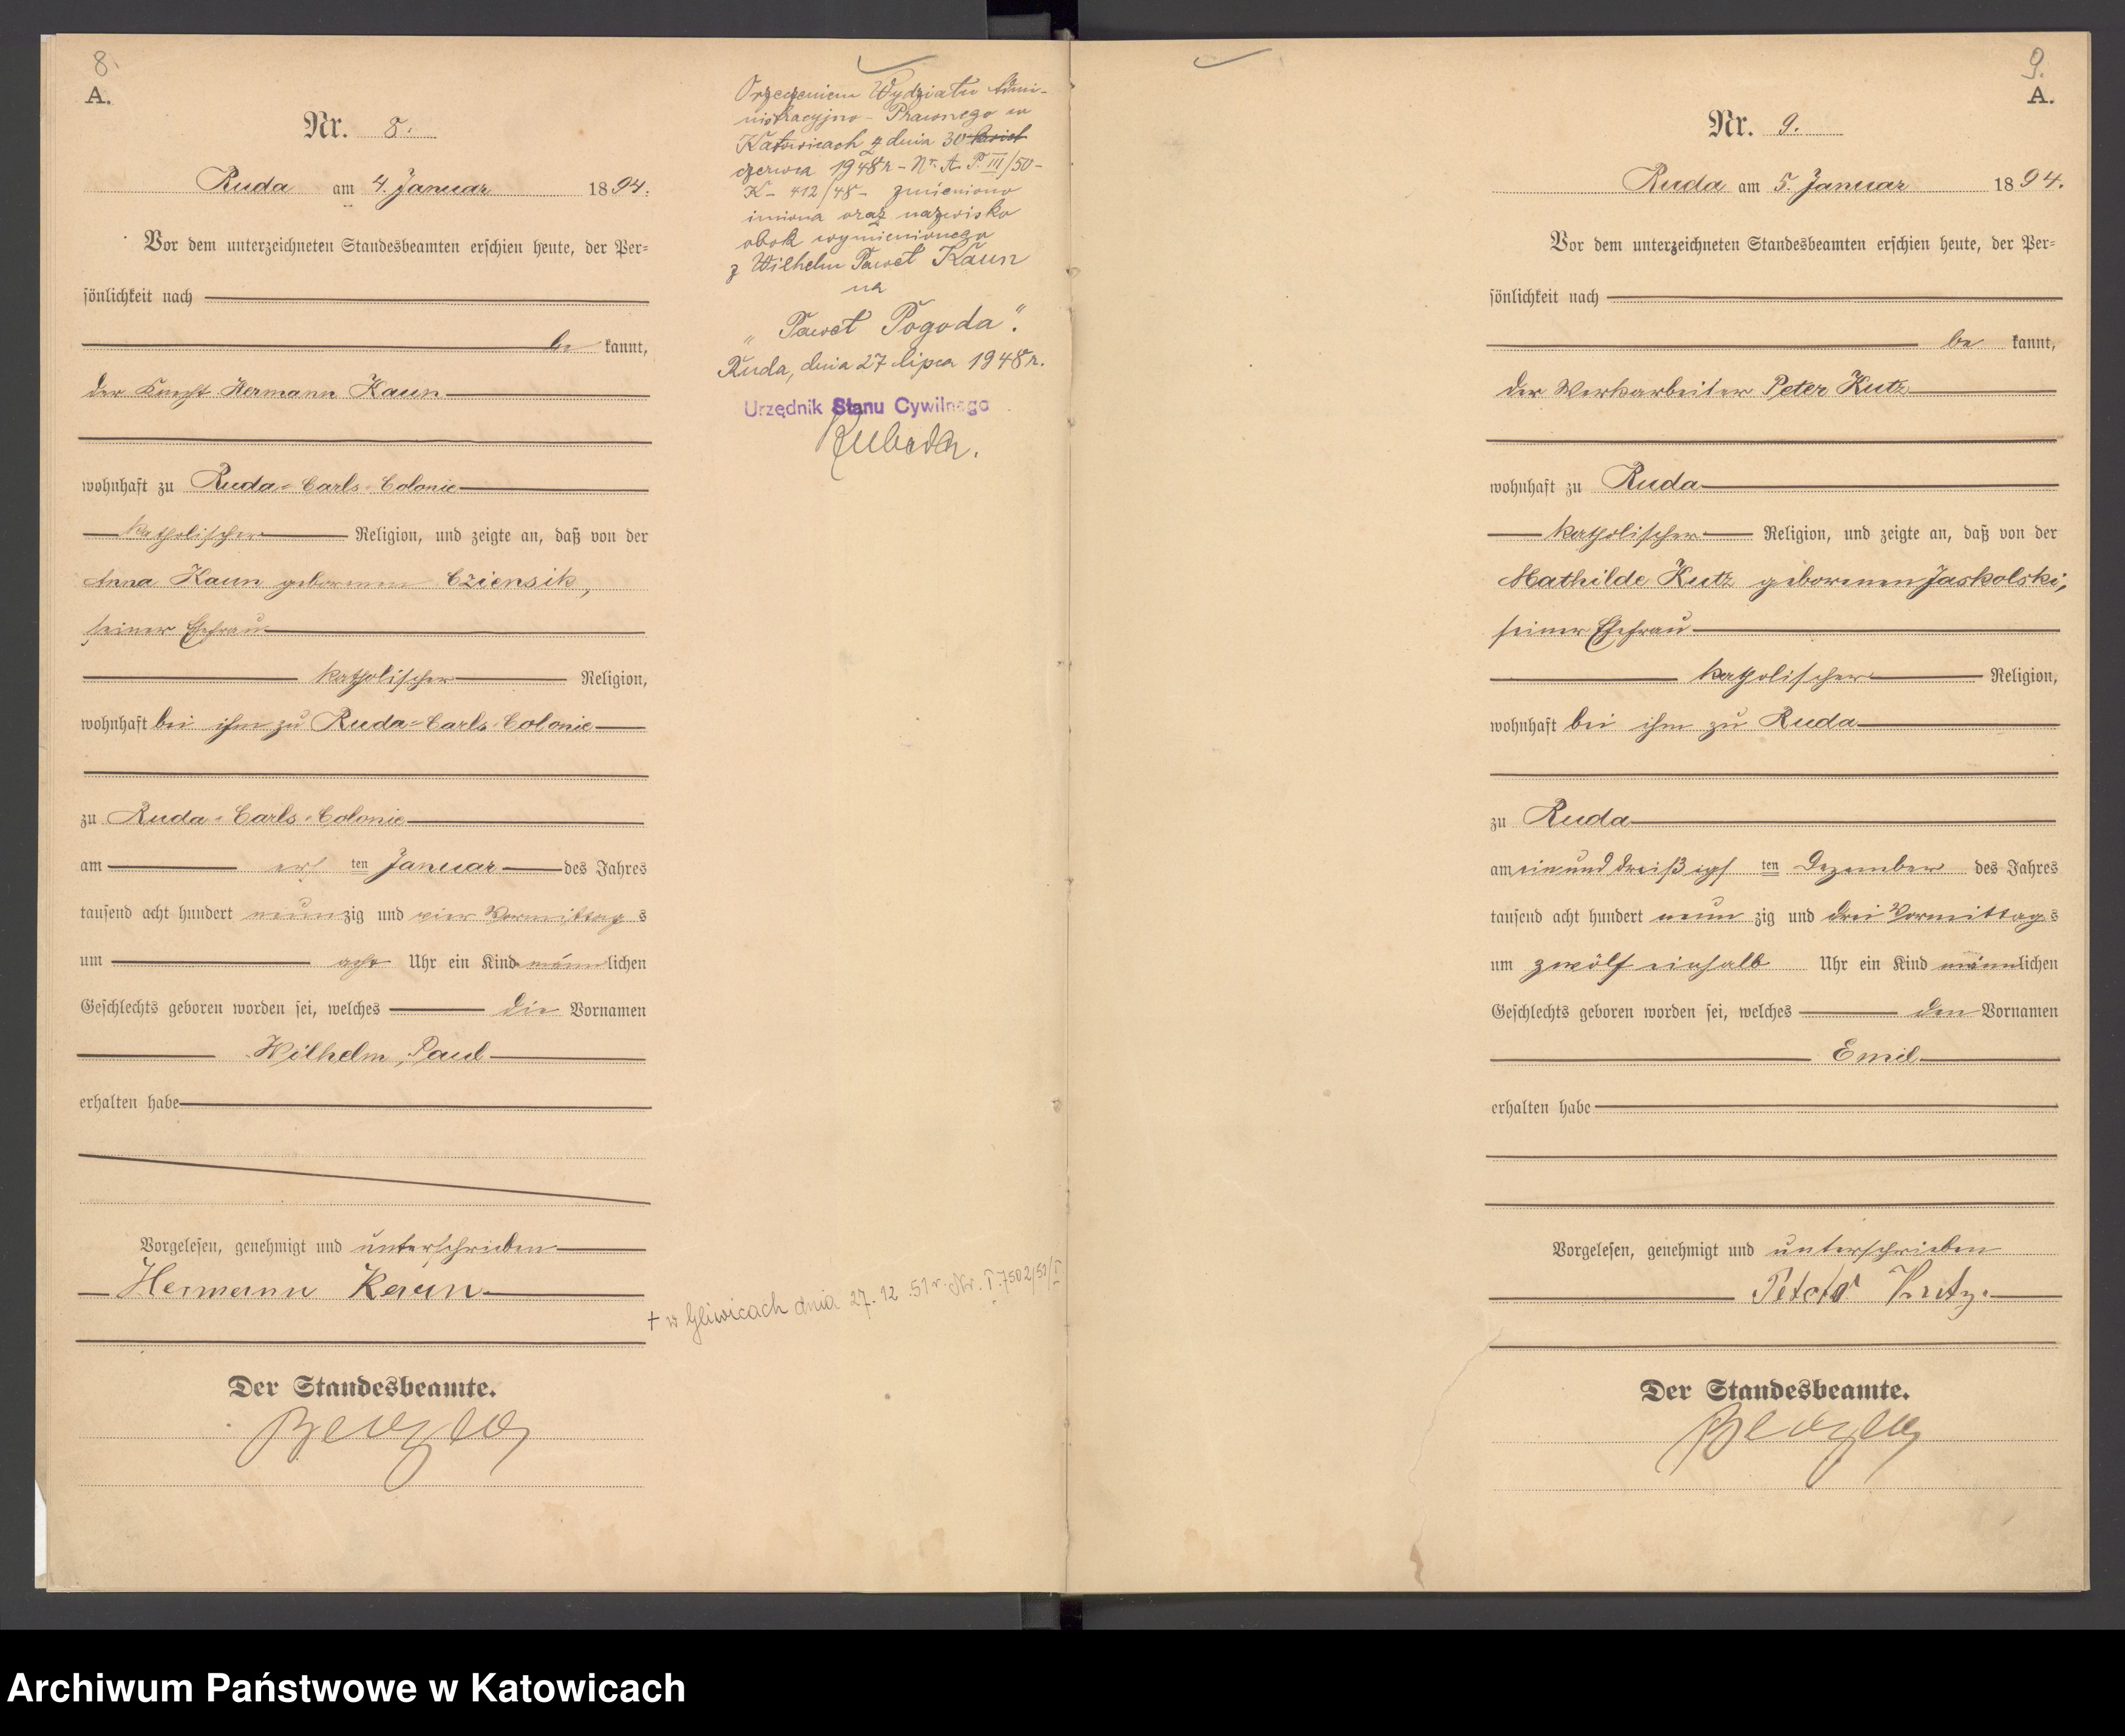 8.
A.
Nr. 8.
Ruda am 4. Januar 1894.
Vor dem unterzeichneten Standesbeamten erschien heute, der Per=
sönlichkeit nach
be kannt,
der Knecht Hermann Kaun
wohnhaft zu Ruda=Carls-Colonie
katholischer Religion, und zeigte an, daß von der
Anna Kaun geborenen Cziensik,
seiner Ehefrau
katholischer Religion,
wohnhaft bei ihm zu Ruda=Carls-Colonie
zu Ruda-Carls-Colonie
am ersten Januar des Jahres
tausend acht hundert neunzig und vier Vormittags
um acht Uhr ein Kind männlichen
Geschlechts geboren worden sei, welches die Vornamen
Wilhelm, Paul
erhalten habe
Vorgelesen, genehmigt und unterschrieben
Hermann Kaun
Der Standesbeamte.
Orzeczeniem Wydziału Admi-
nistracyjno-Prawnego w
Katowicach z dnia 30
czerwca 1948 r - Nr. A. P. III/50-
K- 412/48- zmieniono
imiona oraz nazwisko
obok wymienionego
z Wilhelm Paweł Kaun
na
„Paweł Pogoda".
Ruda, dnia 27 lipca 1948 r.
Urzędnik Stanu Cywilnego
+ w Gliwicach dnia 27.12.51 r. Nr. I.7502/51/I
9.
A.
Nr. 9.
Ruda am 5. Januar 1894.
Vor dem unterzeichneten Standesbeamten erschien heute, der Per=
sönlichkeit nach
be kannt,
der Werkarbeiter Peter Kutz
wohnhaft zu Ruda
katholischer Religion, und zeigte an, daß von der
Mathilde Kutz geborenen Jaskolski,
seiner Ehefrau
katholischer Religion,
wohnhaft bei ihm zu Ruda
zu Ruda
am einunddreißigsten Dezember des Jahres
tausend acht hundert neunzig und drei Vormittags
um zwölf einhalb Uhr ein Kind männlichen
Geschlechts geboren worden sei, welches den Vornamen
Emil
erhalten habe
Vorgelesen, genehmigt und unterschrieben
Peter Kutz.
Der Standesbeamte.
Archiwum Państwowe w Katowicach